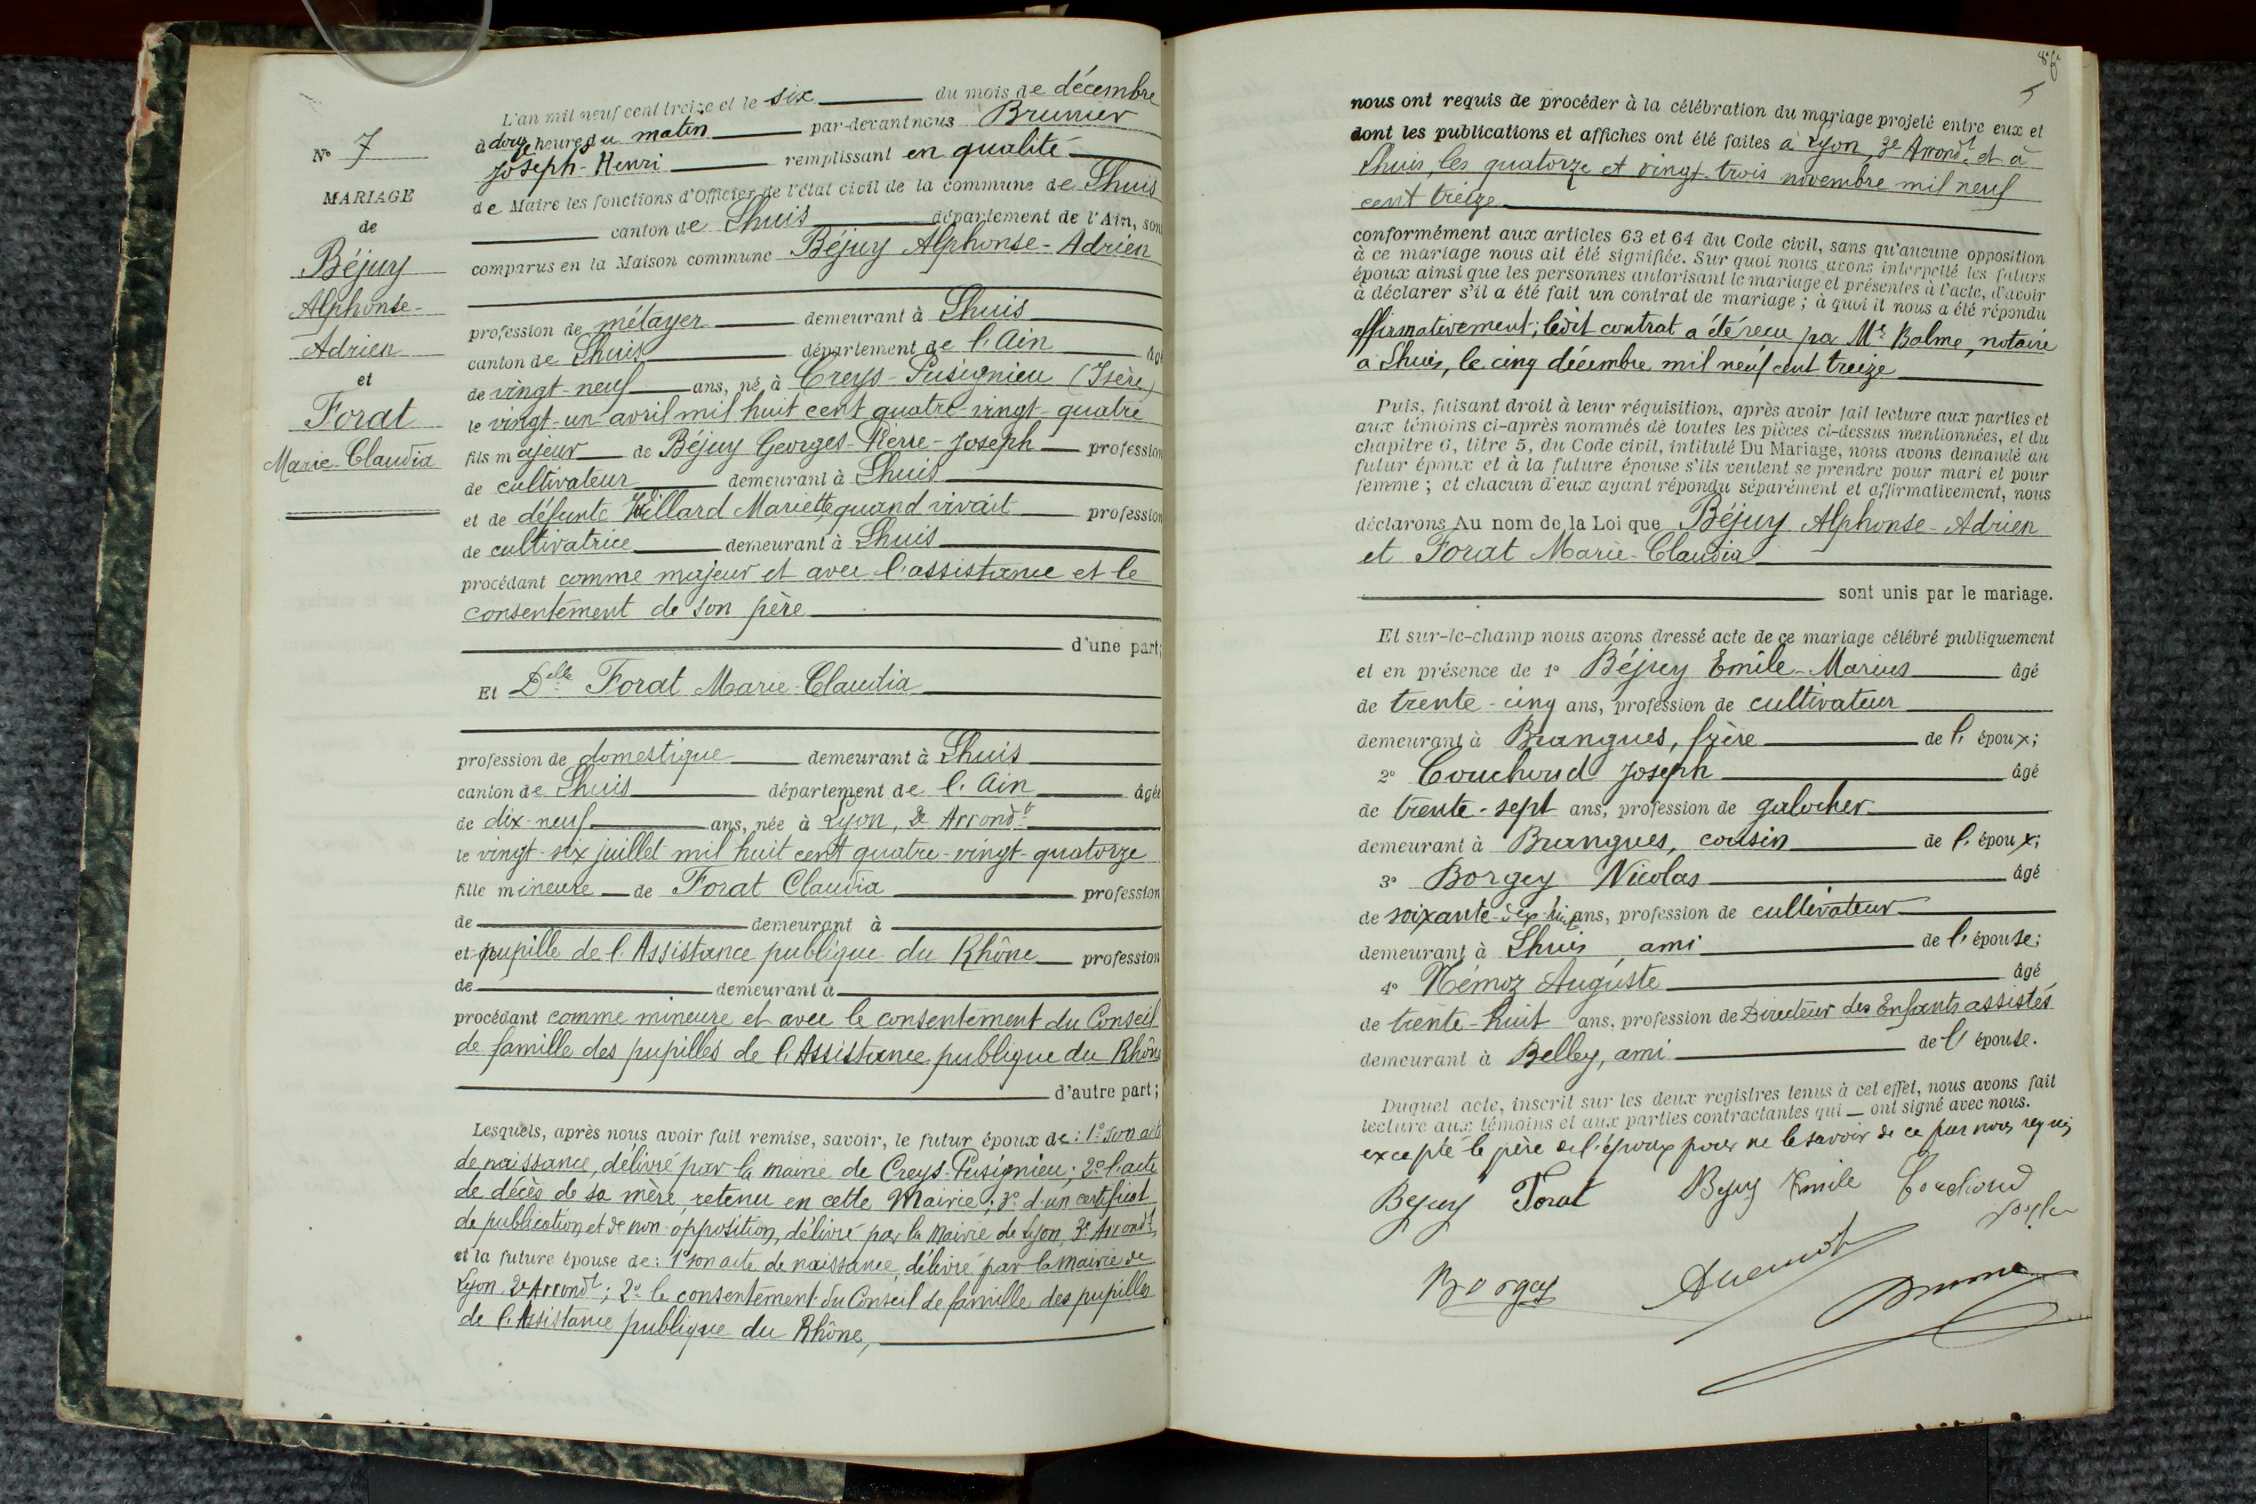 N° 7
MARIAGE
de
Béjuy
Alphonse-
Adrien
et
Forat
Marie-Claudia
L'an mil neuf cent treize et le six du mois de décembre
à heures du matin par-devant nous Brunier
Joseph-Henri remplissant en qualité
de Maire les fonctions d'Officier de l'état civil de la commune de Lhuis
canton de Lhuis département de l'Ain, sont
comparus en la Maison commune Béjuy Alphonse-Adrien
profession de métayer demeurant à Lhuis
canton de Lhuis département de l'Ain âgé
de vingt-neuf ans, né à Creys-Pusignieu (Isère)
le vingt-un avril mil huit cent quatre-vingt-quatre
fils majeur de Béjuy Georges-Pierre-Joseph profession
de cultivateur demeurant à Lhuis
et de défunte Villard Mariette, quand vivait profession
de cultivatrice demeurant à Lhuis
procédant comme majeur et avec l'assistance et le
consentement de son père
d'une part;
Et Delle Forat Marie-Claudia
profession de domestique demeurant à Lhuis
canton de Lhuis département de l'Ain âgée
de dix-neuf ans, née à Lyon, 2e Arrondt
le vingt-six juillet mil huit cent quatre-vingt-quatorze
fille mineure de Forat Claudia profession
de demeurant à
et pupille de l'Assistance publique du Rhône profession
de demeurant à
procédant comme mineure et avec le consentement du Conseil
de famille des pupilles de l'Assistance publique du Rhône
d'autre part;
Lesquels, après nous avoir fait remise, savoir, le futur époux de : 1° son acte
de naissance, délivré par la mairie de Creys-Pusignieu; 2° l'acte
de décès de sa mère, retenu en cette Mairie; 3° d'un certificat
de publication et de non-opposition, délivré par la Mairie de Lyon, 3e Arrondt,
et la future épouse de : 1° son acte de naissance, délivré par la mairie de
Lyon 2e Arrondt; 2° le consentement du Conseil de famille des pupilles
de l'Assistance publique du Rhône,
nous ont requis de procéder à la célébration du mariage projeté entre eux et
dont les publications et affiches ont été faites à Lyon, 3e Arrondt. et à
Lhuis, les quatorze et vingt-trois novembre mil neuf
cent treize
conformément aux articles 63 et 64 du Code civil, sans qu'aucune opposition
à ce mariage nous ait été signifiée. Sur quoi nous avons interpellé les futurs
époux ainsi que les personnes autorisant le mariage et présentes à l'acte, d'avoir
à déclarer s'il a été fait un contrat de mariage ; à quoi il nous a été répondu
affirmativement; ledit contrat a été reçu par Me Balme, notaire
à Lhuis, le cinq décembre mil neuf cent treize
Puis, faisant droit à leur réquisition, après avoir fait lecture aux parties et
aux témoins ci-après nommés de toutes les pièces ci-dessus mentionnées, et du
chapitre 6, titre 5, du Code civil, intitulé Du Mariage, nous avons demandé au
futur époux et à la future épouse s'ils veulent se prendre pour mari et pour
femme ; et chacun d'eux ayant répondu séparément et affirmativement, nous
déclarons Au nom de la Loi que Béjuy Alphonse-Adrien
et Forat Marie-Claudia
sont unis par le mariage.
Et sur-le-champ nous avons dressé acte de ce mariage célébré publiquement
et en présence de 1° Béjuy Emile-Marius âgé
de trente-cinq ans, profession de cultivateur
demeurant à Brangues, frère de l'époux;
2° Couchoud Joseph âgé
de trente-sept ans, profession de galocher
demeurant à Brangues, cousin de l'époux;
3° Borgey Nicolas âgé
de soixante-dix-huit ans, profession de cultivateur
demeurant à Lhuis, ami de l'épouse;
4° Némoz Auguste âgé
de trente-huit ans, profession de Directeur des Enfants assistés
demeurant à Belley, ami de l'épouse.
Duquel acte, inscrit sur les deux registres tenus à cet effet, nous avons fait
lecture aux témoins et aux parties contractantes qui ont signé avec nous.
excepté le père de l'époux pour ne le savoir de ce par nous requis
Bejuy Forat Bejuy Emile Couchoud
Joseph
Borgey